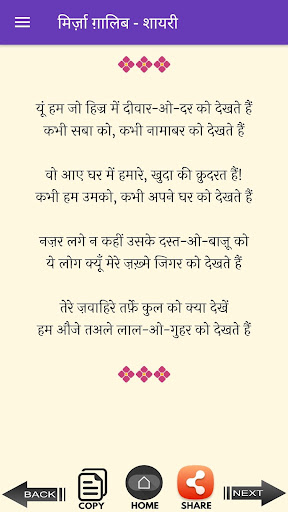 मिर्ज़ा ग़ालिब - शायरी
यूं हम जो हिज्र में दीवार-ओ-दर को देखते हैं
कभी सबा को, कभी नामाबर को देखते हैं
वो आए घर में हमारे, खुदा की क़ुदरत हैं!
कभी हम उमको, कभी अपने घर को देखते हैं
नज़र लगे न कहीं उसके दस्त-ओ-बाज़ू को
ये लोग क्यूँ मेरे ज़ख़्मे जिगर को देखते हैं
तेरे ज़वाहिरे तर्फ़े कुल को क्या देखें
हम औजे तअले लाल-ओ-गुहर को देखते हैं
BACK
COPY
HOME
SHARE
NEXT